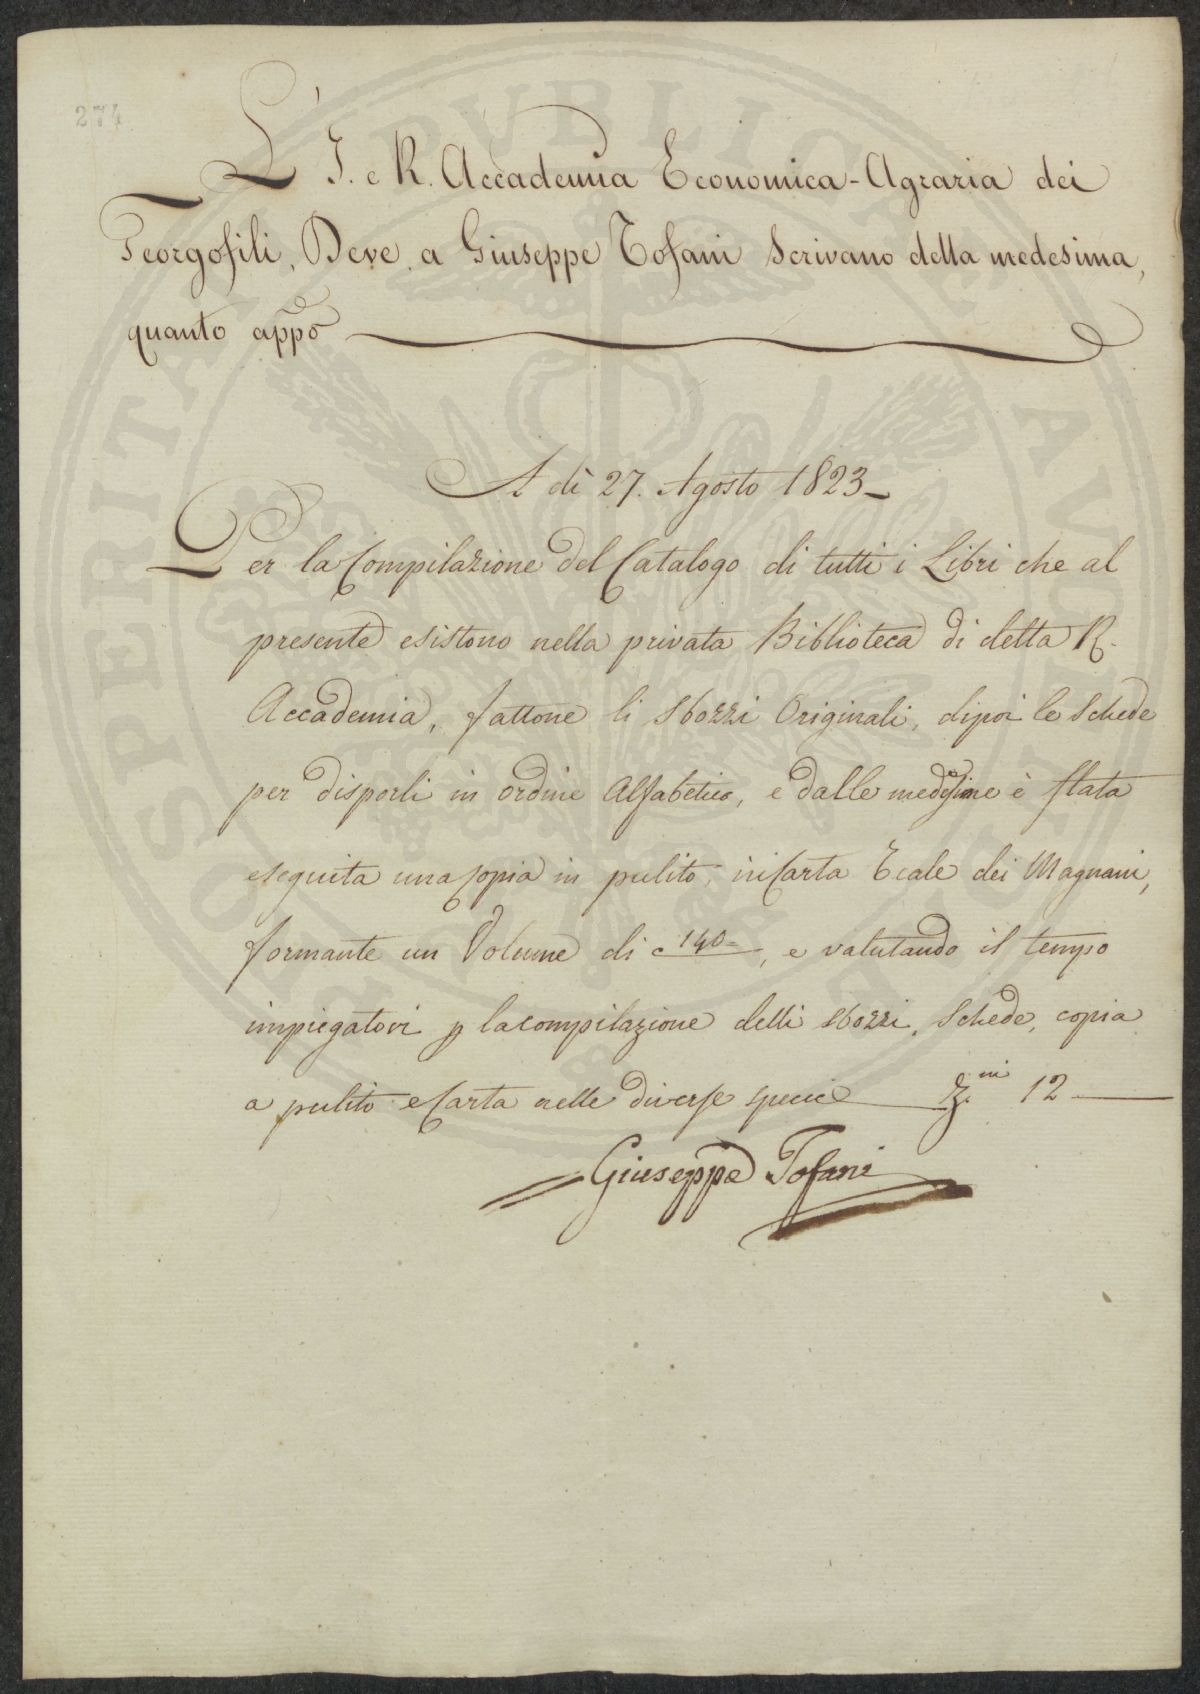 274
L'I. e R. Accademia Economica-Agraria dei
Georgofili, Deve a Giuseppe Tofani Scrivano della medesima,
quanto app.o
A dì 27. Agosto 1823
Per la Compilazione del Catalogo di tutti i Libri che al
presente esistono nella privata Biblioteca di detta R.
Accademia, fattone li sbozzi Originali, dipoi le Schede
per disporli in ordine Alfabetico, e dalle medesime è stata
eseguita una Copia in pulito, in Carta Reale dei Magnani,
formante un Volume di c 140=, e valutando il tempo
impiegatovi p la compilazione delli sbozzi, Schede, copia
a pulito e Carta nelle diverse specie Z.ni 12
Giuseppe Tofani
PROSPERITATI PUBLICAE AUGENDAE